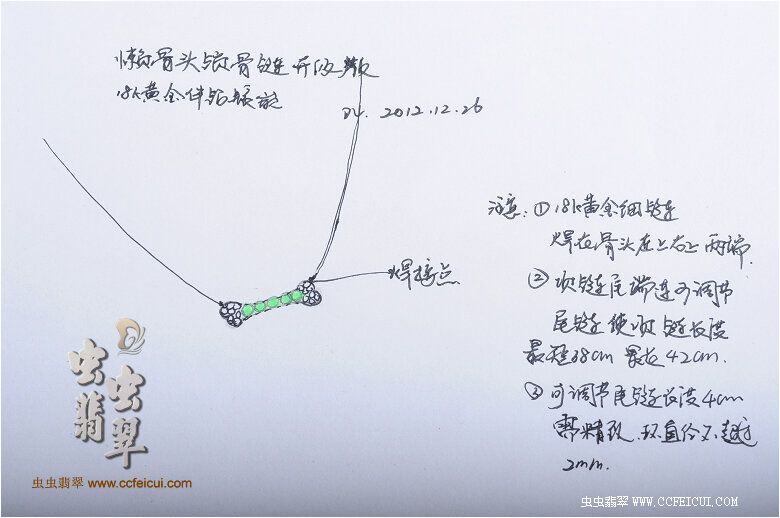 懒骨头锁骨链开版款
18k黄金伴钻镶嵌
2012.12.26
注意：①18k黄金细链
焊在骨头左上右上两端.
焊接点
②项链尾端连可调节
尾链使项链长度
最短38cm 最长42cm.
③可调节尾链长度4cm
需精致，环直径不超过
2mm.
虫虫翡翠
虫虫翡翠 www.ccfeicui.com
虫虫翡翠 WWW.CCFEICUI.COM